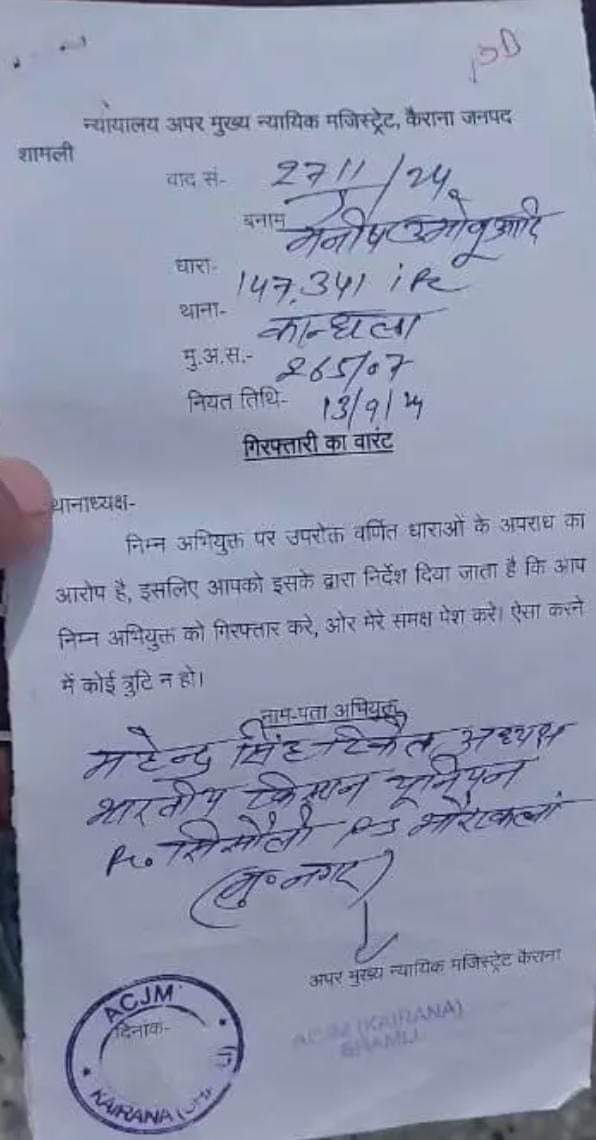 न्यायालय अपर मुख्य न्यायिक मजिस्ट्रेट, कैराना जनपद
शामली
वाद सं- 2711/24
बनाम मनीष उ मोनू आदि
धारा- 147,341 iPc
थाना- कान्धला
मु.अ.स.- 265/07
नियत तिथि- 13/9/24
गिरफ्तारी का वारंट
थानाध्यक्ष-
निम्न अभियुक्त पर उपरोक्त वर्णित धाराओं के अपराध का
आरोप है, इसलिए आपको इसके द्वारा निर्देश दिया जाता है कि आप
निम्न अभियुक्त को गिरफ्तार करे, ओर मेरे समक्ष पेश करे। ऐसा करने
में कोई त्रुटि न हो।
नाम-पता अभियुक्त
महेन्द्र सिंह टिकैत अध्यक्ष
भारतीय किसान यूनियन
R/o सिसौली PS भौराकलां
(मु०नगर)
अपर मुख्य न्यायिक मजिस्ट्रेट कैराना
ACJM (KAIRANA)
SHAMLI
ACJM
दिनांक-
KAIRANA